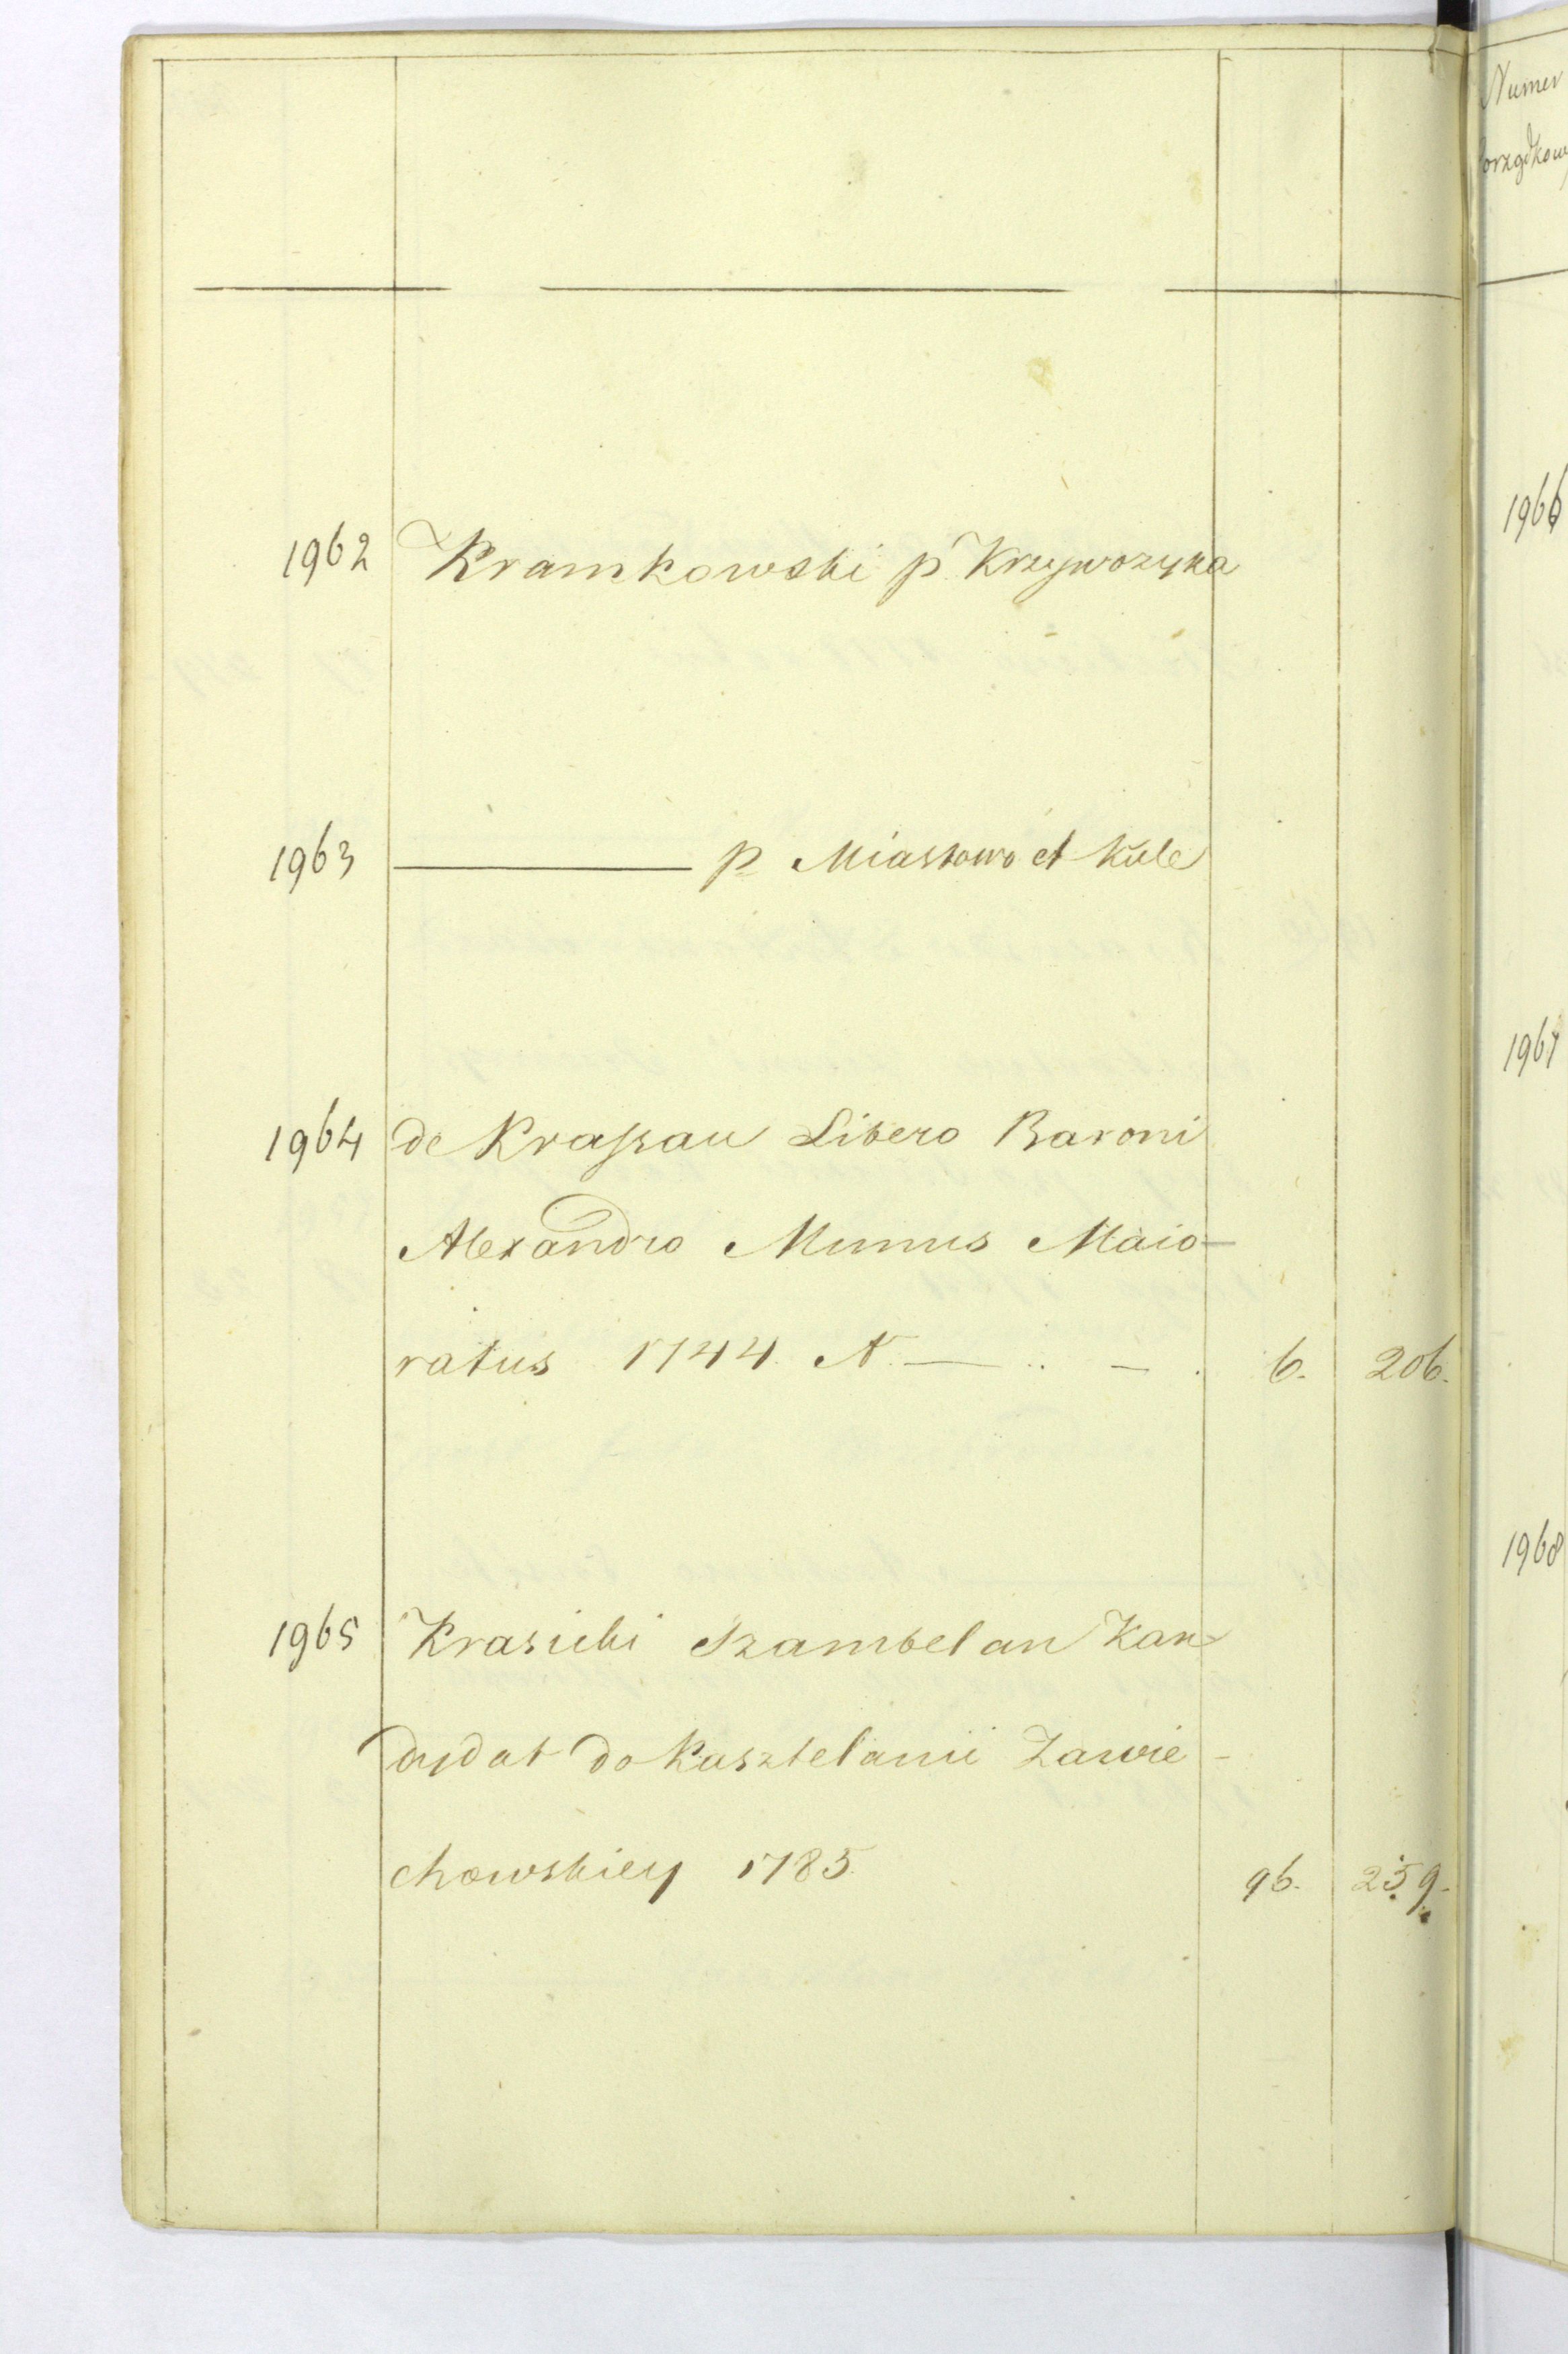 1962 Kramkowski p Krzywozyka
1963 ——— p Miastowo et Kule
1964 de Kraßau Libero Baroni
Alexandro Munus Maio-
ratus 1744. N. — .. — . 6. 206.
1965 Krasicki Szambelan Kan-
dydat do Kasztelanii Zawie-
chowskiey 1785 96. 259.
Numer
1966
1967
1968